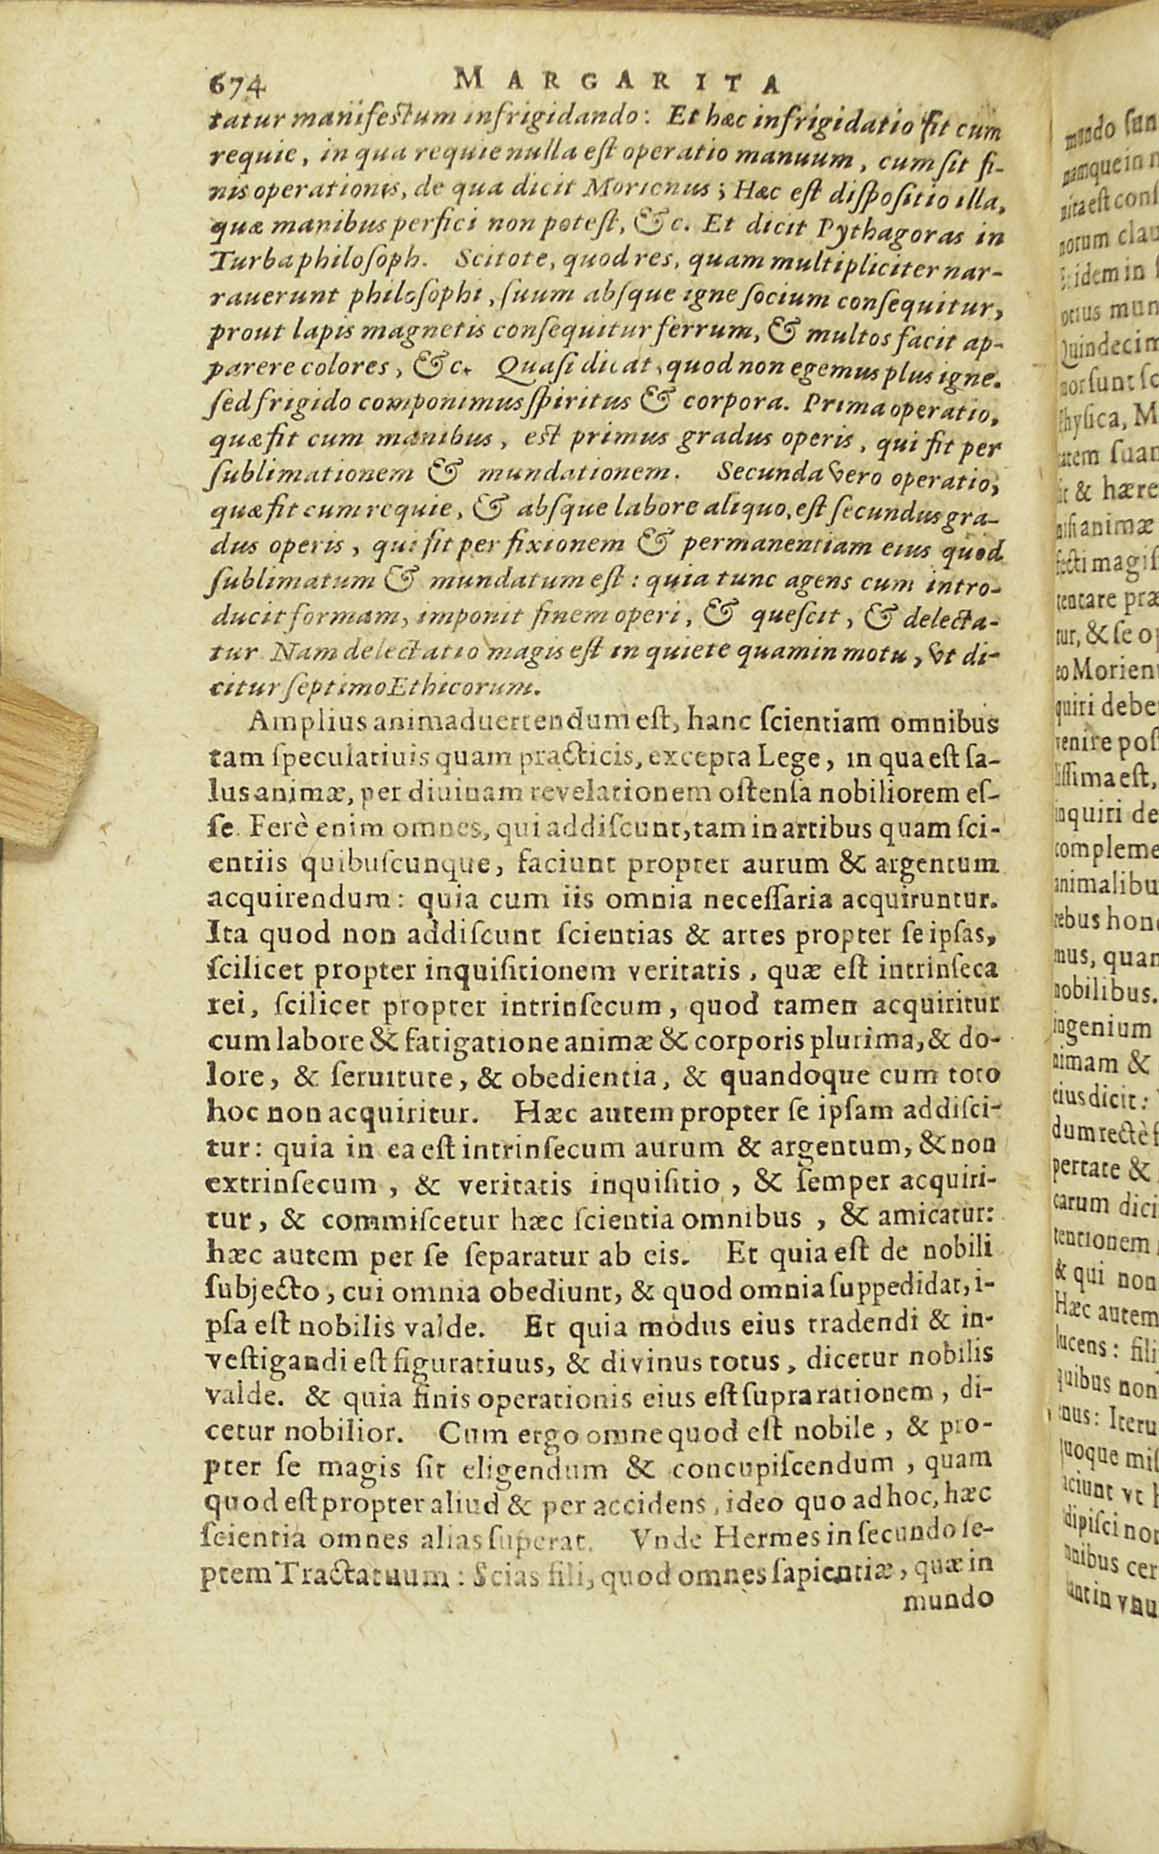 674 MARGARITA
tatur maniifestum infrigidando: Et hæc infrigidatio fit cum
requie, in qua requie nulla est operatio manuum, cum sit fi-
nis operationis, de qua dicit Morienus; Hæc est dispositio illa,
quæ manibus perfici non potest, &c. Et dicit Pythagoras in
Turba philosoph. Scitote, quod res, quam multipliciter nar-
rauerunt philosophi, suum absque igne socium consequitur,
prout lapis magnetis consequitur ferrum, & multos facit ap-
parere colores, &c. Quasi dicat, quod non egemus plus igne.
sed frigido componimus spiritus & corpora. Prima operatio,
quæ fit cum manibus, est primus gradus operis, qui fit per
sublimationem & mundationem. Secunda vero operatio,
quæ fit cum requie, & absque labore aliquo, est secundus gra-
dus operis, qui fit per fixionem & permanentiam eius quod
sublimatum & mundatum est: quia tunc agens cum intro-
ducit formam, imponit finem operi, & quescit, & delecta-
tur. Nam delectatio magis est in quiete quam in motu, vt di-
citur septimo Ethicorum.
Amplius animaduertendum est, hanc scientiam omnibus
tam speculatiuis quam practicis, excepta Lege, in qua est sa-
lus animæ, per diuinam revelationem ostensa nobiliorem es-
se. Ferè enim omnes, qui addiscunt, tam in artibus quam sci-
entiis quibuscunque, faciunt propter aurum & argentum
acquirendum: quia cum iis omnia necessaria acquiruntur.
Ita quod non addiscunt scientias & artes propter se ipsas,
scilicet propter inquisitionem veritatis, quæ est intrinseca
rei, scilicet propter intrinsecum, quod tamen acquiritur
cum labore & fatigatione animæ & corporis plurima, & do-
lore, & seruitute, & obedientia, & quandoque cum toto
hoc non acquiritur. Hæc autem propter se ipsam addisci-
tur: quia in ea est intrinsecum aurum & argentum, & non
extrinsecum, & veritatis inquisitio, & semper acquiri-
tur, & commiscetur hæc scientia omnibus, & amicatur:
hæc autem per se separatur ab eis. Et quia est de nobili
subjecto, cui omnia obediunt, & quod omnia suppedidat, i-
psa est nobilis valde. Et quia modus eius tradendi & in-
vestigandi est figuratiuus, & divinus totus, dicetur nobilis
valde. & quia finis operationis eius est supra rationem, di-
cetur nobilior. Cum ergo omne quod est nobile, & pro-
pter se magis sit eligendum & concupiscendum, quam
quod est propter aliud & per accidens, ideo quo ad hoc, hæc
scientia omnes alias superat. Vnde Hermes in secundo se-
ptem Tractatuum: Scias fili, quod omnes sapientiæ, quæ in
mundo
mundo sun
namque in
nita est cons
notum clau
Et idem in
otius mun
Quindecim
nor sunt sc
Physica, M
atem suam
& hære
nisi animæ
fecti magis
tentare præ
tur, & se op
eo Morien
quiri debe
venire pos
lissima est,
inquiri de
compleme
animalibu
rebus hon
mus, quan
nobilibus.
ingenium
nimam &
eius dicit:
dum rectè s
pertate &
carum dici
tentionem
& qui non
Hæc autem
lucens: fili
quibus non
enus: Iteru
quoque mis
aciunt vt
dipisci non
nnibus cer
in vnu